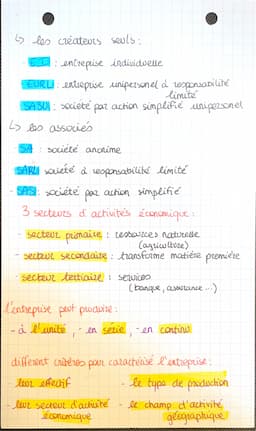 ↳ les créateurs seuls :
E.I : entreprise individuelle
EURL : entreprise unipersonel à responsabilité
limité
SASU : societé par action simplifié unipersonel
↳ les associés
SA : société anonime
SARL société à responsabilité limité
- SAS : société par action simplifié
3 secteurs d'activités économique :
- secteur primaire : ressources naturelle
(agriculture)
- secteur secondaire : transforme matière première
- secteur tertiaire : services
(banque, assurance...)
l'entreprise peut produire :
- à l'unité, - en série, - en continu
different critères pour caractérisé l'entreprise :
- leur effectif - le type de production
- leur secteur d'activité - le champ d'activité
économique géographique